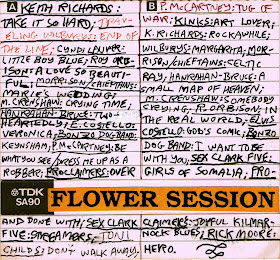 A KEITH RICHARDS:
TAKE IT SO HARD; TRAV-
ELING WILBURYS: END OF
THE LINE; CYNDI LAUPER:
LITTLE BOY BLUE; ROY ORB-
ISON: A LOVE SO BEAUTI-
FUL; MORRISON/CHIEFTAINS:
MARIE'S WEDDING;
M. CRENSHAW: CRYING TIME,
HANRAHAN-BRUCE: TWO-
HEARTED...; E. COSTELLO:
VERONICA, BONZO DOG BAND:
KEYNSHAM, P. McCARTNEY: BE
WHAT YOU SEE/DRESS ME UP AS A
ROBBER; PROCLAIMERS: OVER
B P. McCARTNEY: TUG OF
WAR; KINKS: ART LOVER;
K. RICHARDS: ROCKAWHILE;
WILBURYS: MARGARITA, MOR-
RISON/CHIEFTAINS: CELTIC
RAY, HANRAHAN-BRUCE: A
SMALL MAP OF HEAVEN;
M. CRENSHAW: SOMEBODY
CRYING, R. ORBISON: IN
THE REAL WORLD; ELVIS
COSTELLO: GOD'S COMIC, BONZO
DOG BAND: I WANT TO BE
WITH YOU, SEX CLARK FIVE:
GIRLS OF SOMALIA, PRO-
TDK
SA90
FLOWER SESSION
AND DONE WITH; SEX CLARK
FIVE: STREAMERS, TONI
CHILDS: DON'T WALK AWAY.
CLAIMERS: JOYFUL KILMAR-
NOCK BLUES; RICK MOORE:
HERO.